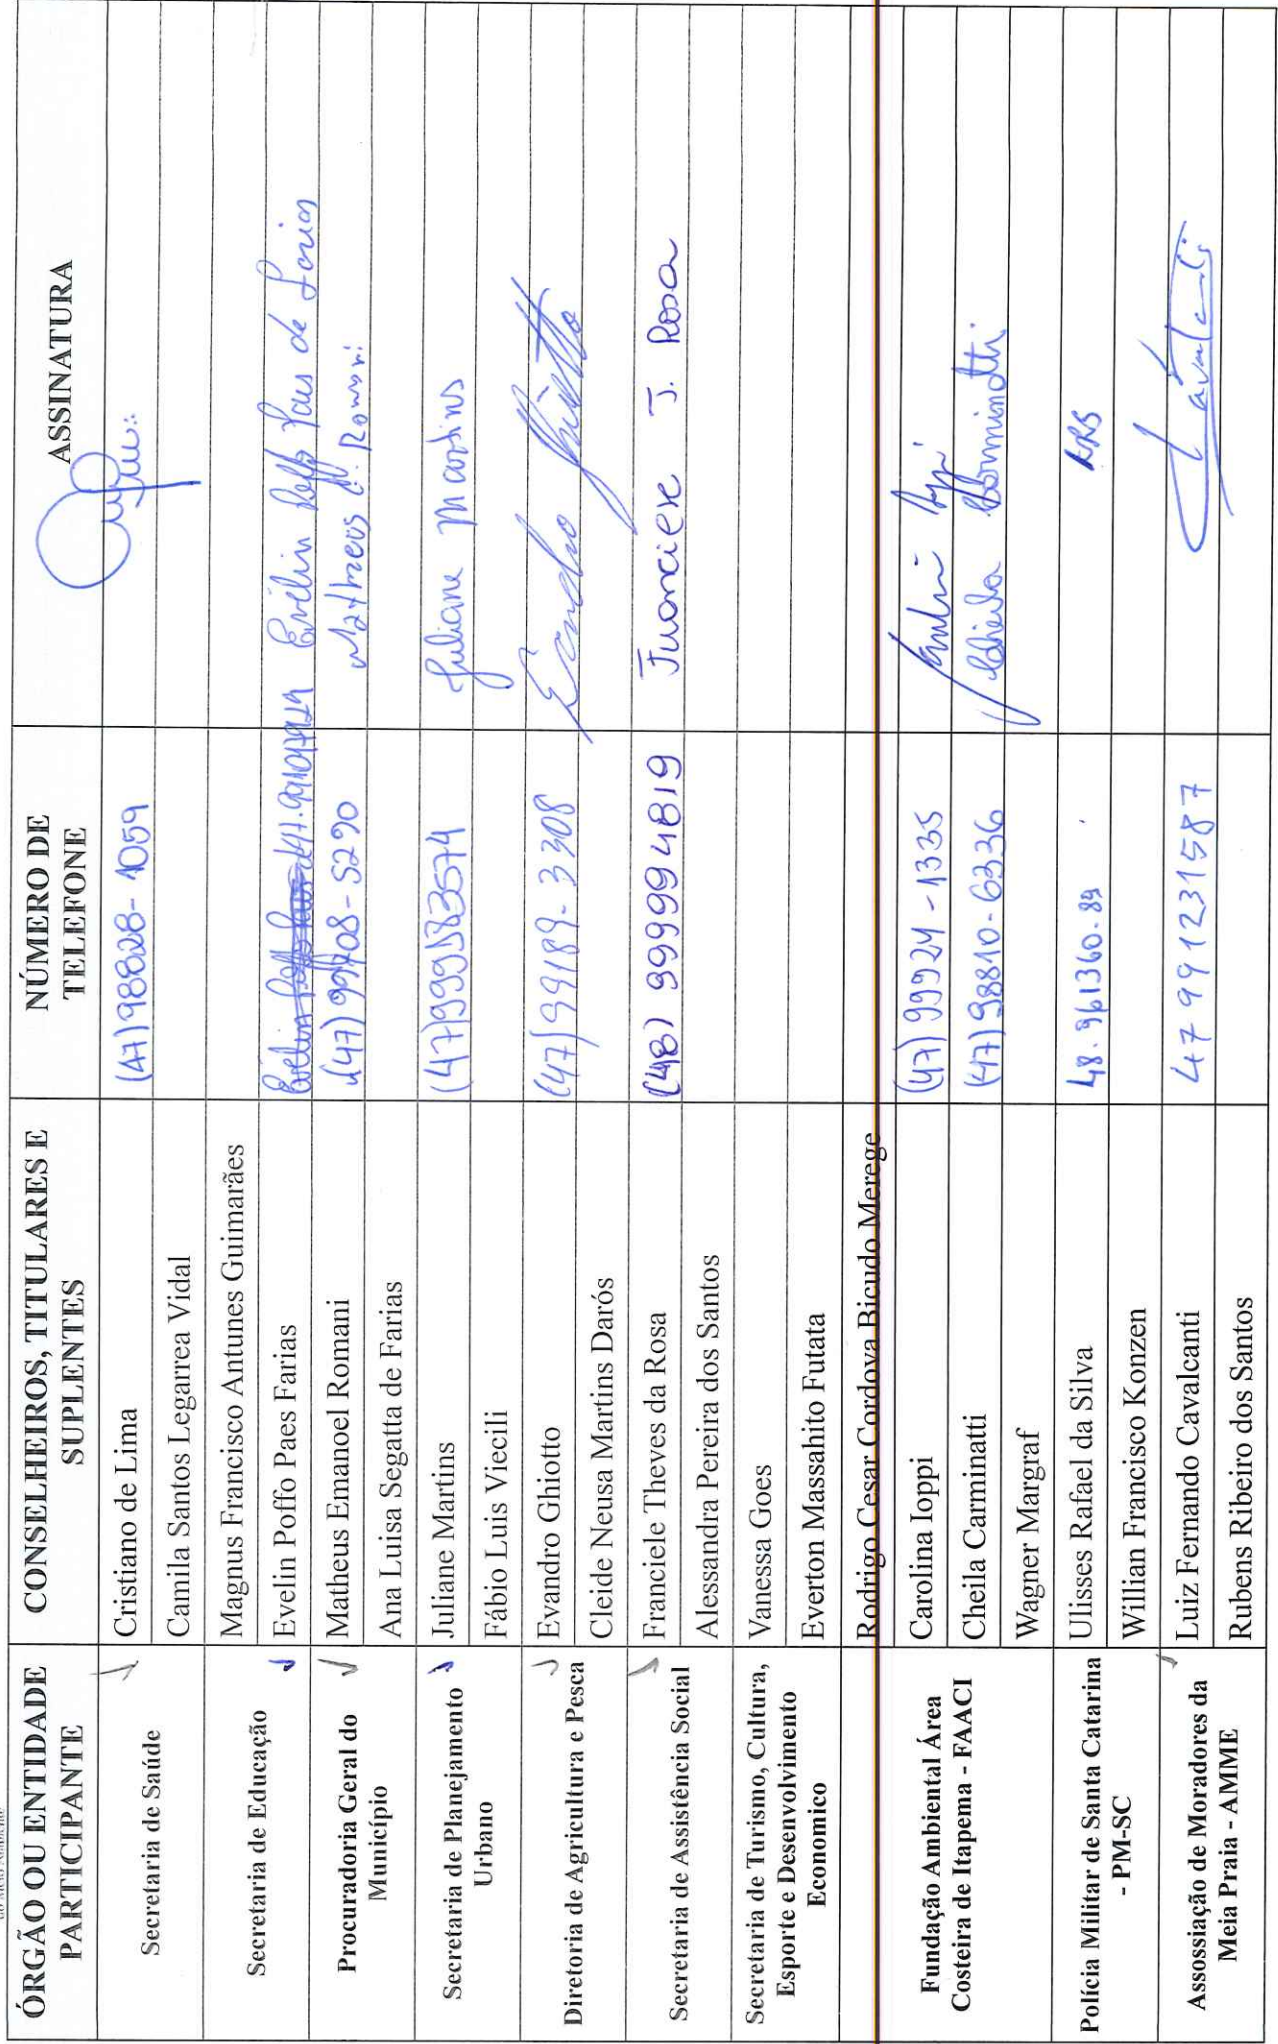 ÓRGÃO OU ENTIDADE PARTICIPANTE
CONSELHEIROS, TITULARES E SUPLENTES
NÚMERO DE TELEFONE
ASSINATURA
Secretaria de Saúde
Cristiano de Lima
(47)98828-1059
Camila Santos Legarrea Vidal
Secretaria de Educação
Magnus Francisco Antunes Guimarães
Evelin Poffo Paes Farias
Evelin Poffo Paes de Farias
Procuradoria Geral do Município
Matheus Emanoel Romani
(47) 99708-5290
Matheus E. Romani
Ana Luisa Segatta de Farias
Secretaria de Planejamento Urbano
Juliane Martins
(47)999583574
Juliane Martins
Fábio Luis Viecili
Diretoria de Agricultura e Pesca
Evandro Ghiotto
(47)99189-3308
Evandro Ghiotto
Cleide Neusa Martins Darós
Secretaria de Assistência Social
Franciele Theves da Rosa
(48) 999994819
Franciele T. Rosa
Alessandra Pereira dos Santos
Secretaria de Turismo, Cultura, Esporte e Desenvolvimento Economico
Vanessa Goes
Everton Massahito Futata
Rodrigo Cesar Cordova Bicudo Merege
Fundação Ambiental Área Costeira de Itapema - FAACI
Carolina Ioppi
(47) 99924-1335
Cheila Carminatti
(47) 98810-6336
Cheila Carminatti
Wagner Margraf
Polícia Militar de Santa Catarina - PM-SC
Ulisses Rafael da Silva
48.961360.89
Willian Francisco Konzen
Assossiação de Moradores da Meia Praia - AMME
Luiz Fernando Cavalcanti
47 991231587
Cavalcanti
Rubens Ribeiro dos Santos